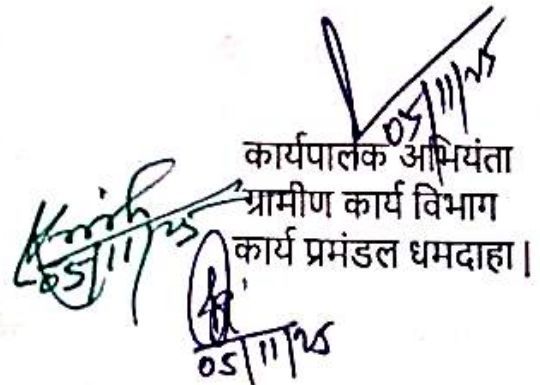 05/11/25
कार्यपालक अभियंता
ग्रामीण कार्य विभाग
कार्य प्रमंडल धमदाहा।
05/11/25
05/11/25